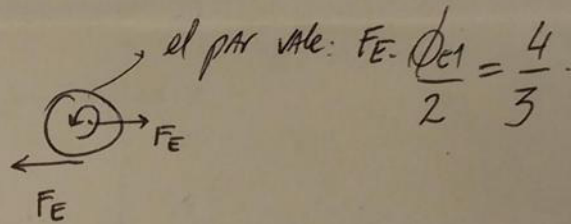 el par vale: F_E · ϕ_E1 / 2 = 4 / 3 ·
F_E
F_E